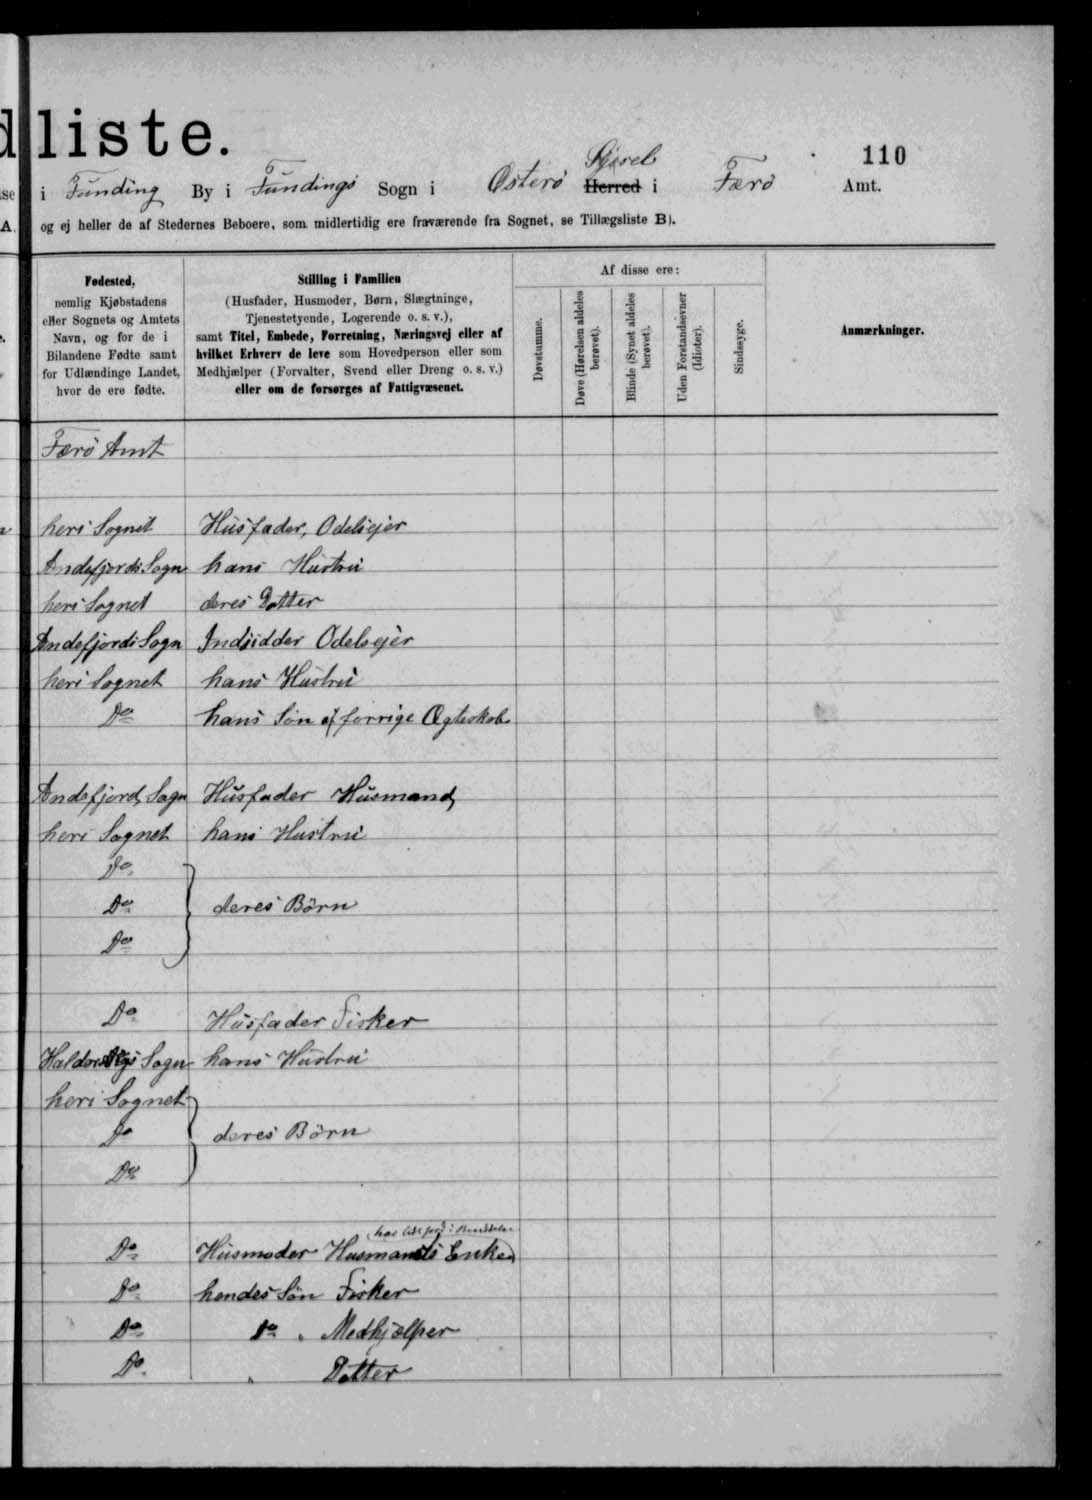 dliste.
110
i Funding By i Fundings Sogn i Østerø Herred Sysel i Færø Amt.
A. og ej heller de af Stedernes Beboere, som midlertidig ere fraværende fra Sognet, se Tillægsliste B).
Fødested,
nemlig Kjøbstadens
eller Sognets og Amtets
Navn, og for de i
Bilandene Fødte samt
for Udlændinge Landet,
hvor de ere fødte.
Stilling i Familien
(Husfader, Husmoder, Børn, Slægtninge,
Tjenestetyende, Logerende o. s. v.),
samt Titel, Embede, Forretning, Næringsvej eller af
hvilket Erhverv de leve som Hovedperson eller som
Medhjælper (Forvalter, Svend eller Dreng o. s. v.)
eller om de forsørges af Fattigvæsenet.
Af disse ere:
Døvstumme.
Døve (Hørelsen aldeles
berøvet).
Blinde (Synet aldeles
berøvet).
Uden Forstandsevner
(Idioter).
Sindssyge.
Anmærkninger.
Færö Amt
heri Sognet Husfader, Odelsejer
Andefjords Sogn hans Hustru
heri Sognet deres Datter
Andefjords Sogn Indsidder Odelsejer
heri Sognet hans Hustru
Do hans Søn af forrige Ægteskab
Andefjord Sogn Husfader Husmand
heri Sognet hans Hustru
Do
Do deres Börn
Do
Do Husfader Fisker
Haldorsvigs Sogn hans Hustru
heri Sognet
Do deres Börn
Do
Do Husmoder Husmands Enke
Do hendes Sön Fisker
Do Do " Medhjælper
Do " Datter